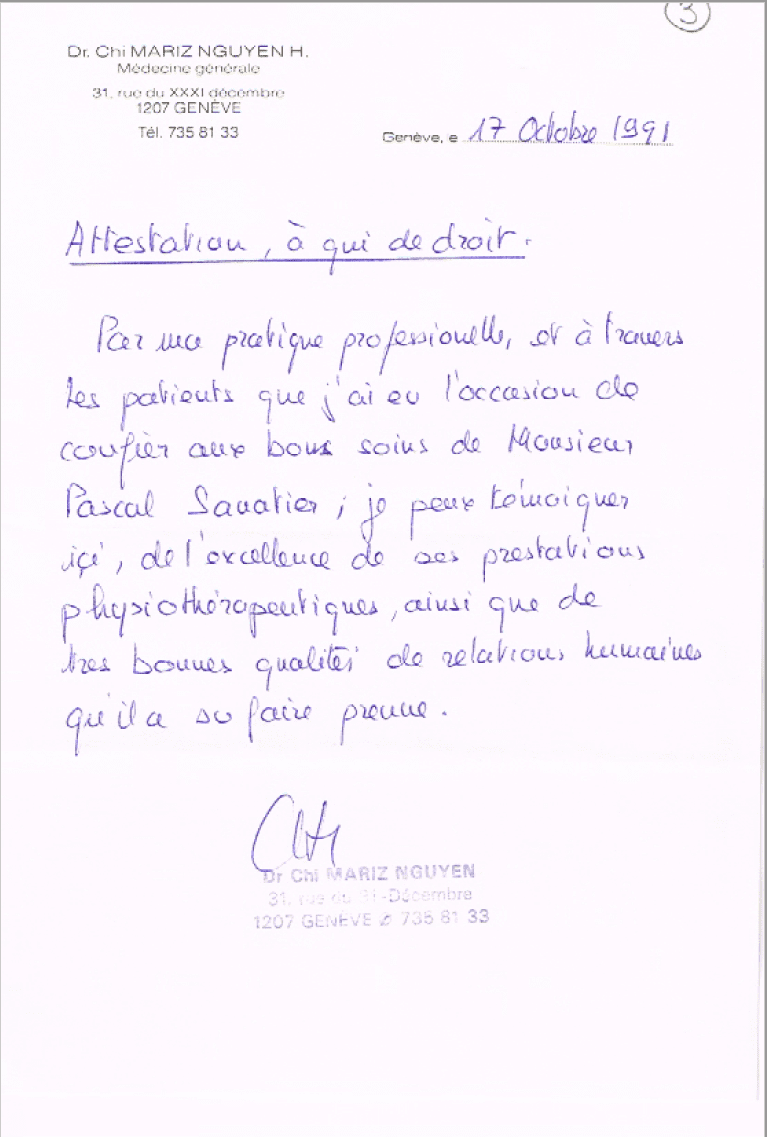 3
Dr. Chi MARIZ NGUYEN H.
Médecine générale
31, rue du XXXI décembre
1207 GENÈVE
Tél. 735 81 33
Genève, e 17 Octobre 1991
Attestation, à qui de droit.
Par ma pratique professionelle, et à travers
les patients que j'ai eu l'occasion de
confier aux bons soins de Monsieur
Pascal Savatier ; je peux témoigner
içi, de l'excellence de ses prestations
physiothérapeutiques, ainsi que de
tres bonnes qualités de relations humaines
qu'il a su faire preuve.
Dr Chi MARIZ NGUYEN
31, rue du 31-Décembre
1207 GENÈVE 735 81 33